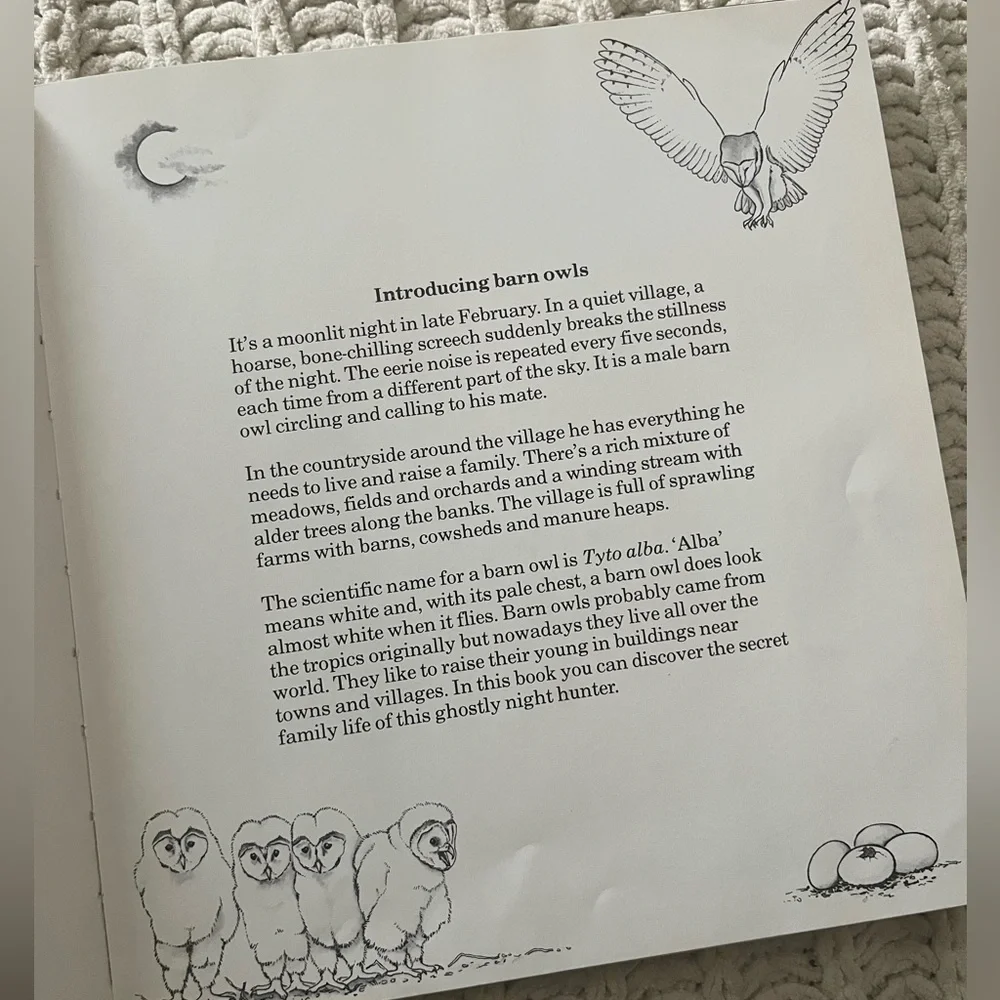 Introducing barn owls
It's a moonlit night in late February. In a quiet village, a
hoarse, bone-chilling screech suddenly breaks the stillness
of the night. The eerie noise is repeated every five seconds,
each time from a different part of the sky. It is a male barn
owl circling and calling to his mate.
In the countryside around the village he has everything he
needs to live and raise a family. There's a rich mixture of
meadows, fields and orchards and a winding stream with
alder trees along the banks. The village is full of sprawling
farms with barns, cowsheds and manure heaps.
The scientific name for a barn owl is Tyto alba. 'Alba'
means white and, with its pale chest, a barn owl does look
almost white when it flies. Barn owls probably came from
the tropics originally but nowadays they live all over the
world. They like to raise their young in buildings near
towns and villages. In this book you can discover the secret
family life of this ghostly night hunter.